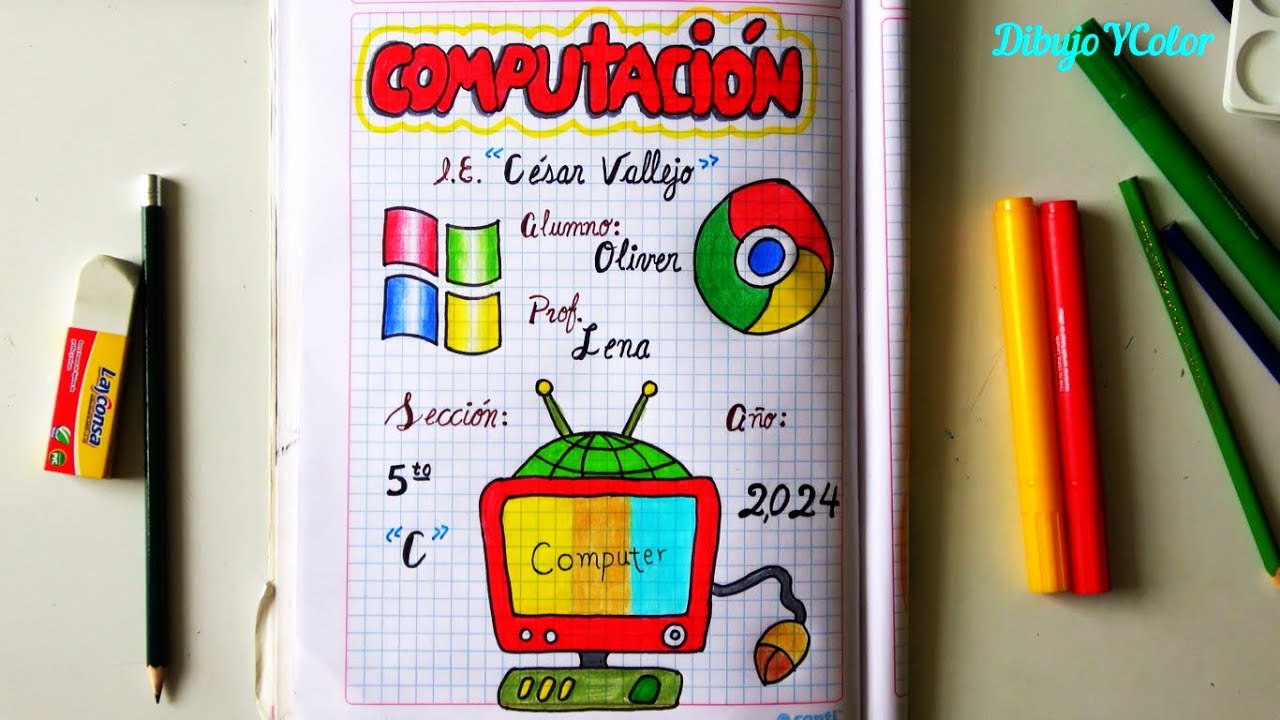 Dibujo YColor
COMPUTACIÓN
I.E. "César Vallejo"
Alumno:
Oliver
Prof.
Lena
Sección:
Año:
5to
2,024
"C"
Computer
LayConsa
conti